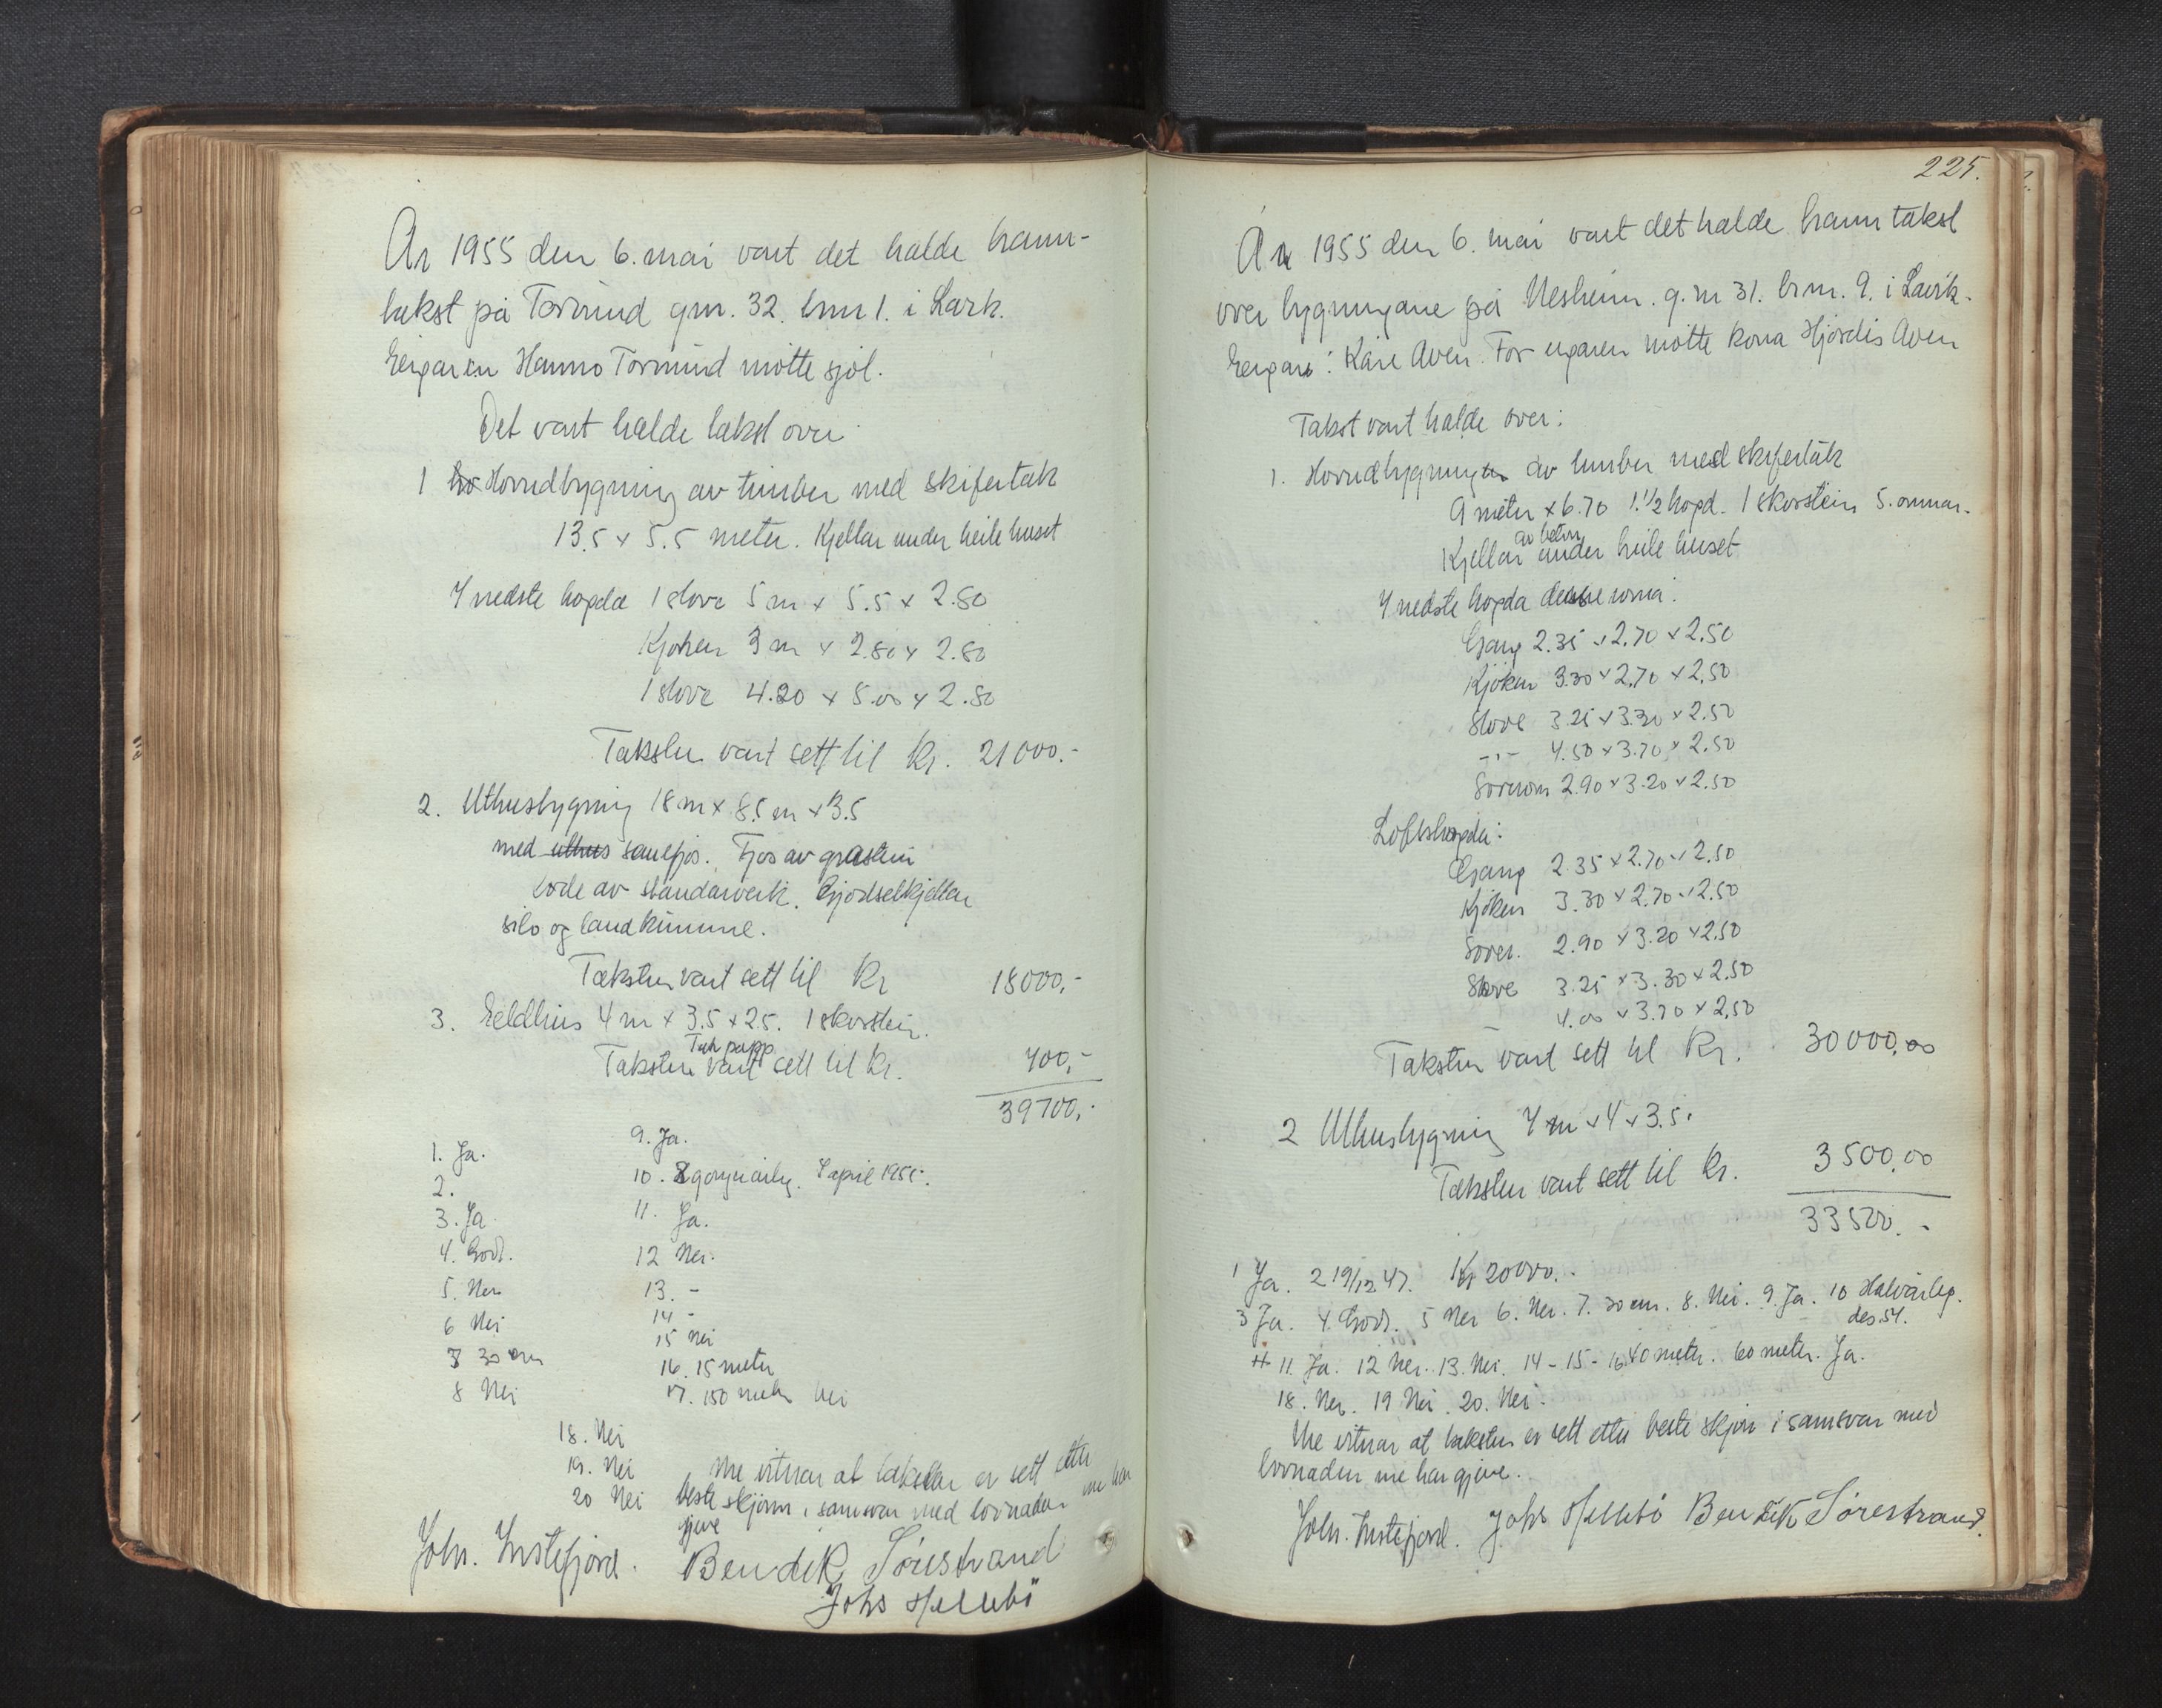 År 1955 den 6. mai vart det halde brann-
takst på Torvund gnr. 32. bnr 1. i Lavik.
Eigaren Hanno Torvund møtte sjøl.
Det vart halde takst over
1 Hovudbygning av timber med skifertak
13.5 x 5.5 meter. Kjellar under heile huset
I nedste høgda 1 stove 5 m x 5.5 x 2.80
Kjøken 3 m x 2.80 x 2.80
1 stove 4.20 x 5.00 x 2.80
Taksten vart sett til kr. 21000.-
2. Uthusbygning 18 m x 8.5 m x 3.5
med uthus sauefjøs. Fjøs av gråstein
Løde av standarverk. Gjødselkjellar
silo og landkumme.
Taksten vart sett til kr 18000,-
3. Eeldhus 4 m x 3.5 x 2.5. 1 skorstein.
Tak papp
Taksten vart sett til kr. 700,-
39700,-
1. Ja. 9. Ja.
2. 10. 2 gonger årleg. I april 1955.
3. Ja 11. Ja.
4. God. 12 Nei.
5. Nei 13. -
6 Nei 14 -
15 Nei
7 30 cm 16. 15 meter
8 Nei 17. 150 meter Nei
18. Nei
19. Nei Me vitnar at taksten er sett etter
20 Nei beste skjønn i samsvar med lovnaden me har
gjeve
Johs. Instefjord. Bendik Sørestrand
Johs Hellebö
225.
År 1955 den 6. mai vart det halde branntakst
over bygningane på Nesheim. g.nr 31. br.nr. 9. i Lavik.
Eigar: Kåre Aven. For eigaren møtte kona Hjørdis Aven
Takst vart halde over:
1. Hovudbygningen av timber med skifertak
9 meter x 6.70 1.1/2 høgd. 1 skorstein 5. omnar.
av betong
Kjellar under heile huset
I nedste høgda desse roma:
Gang 2.35 x 2.70 x 2.50
Kjøken 3.30 x 2.70 x 2.50
Stove 3.25 x 3.30 x 2.50
-"- 4.50 x 3.70 x 2.50
Soverom 2.90 x 3.20 x 2.50
Loftshøgda:
Gang 2.35 x 2.70 x 2.50
Kjøken 3.30 x 2.70 x 2.50
Sover. 2.90 x 3.20 x 2.50
Stove 3.25 x 3.30 x 2.50
- 4.00 x 3.70 x 2.50
Taksten vart sett til kr. 30000,00
2 Uthusbygning 7 m x 4 x 3.5.
Taksten vart sett til kr. 3500,00
33500.-
1 Ja. 2 19/12 47. Kr 20000.-
3 Ja. 4. God. 5 Nei 6. Nei. 7. 30 cm. 8. Nei. 9. Ja. 10 Halvårleg.
des. 54.
11. Ja. 12 Nei. 13. Nei. 14 - 15 - 16. 40 meter. 60 meter. Ja.
18. Nei. 19 Nei. 20. Nei.
Me vitnar at taksten er sett etter beste skjøn i samsvar med
lovnaden me har gjeve.
Johs. Instefjord. Johs Hellebö Bendik Sørestrand.